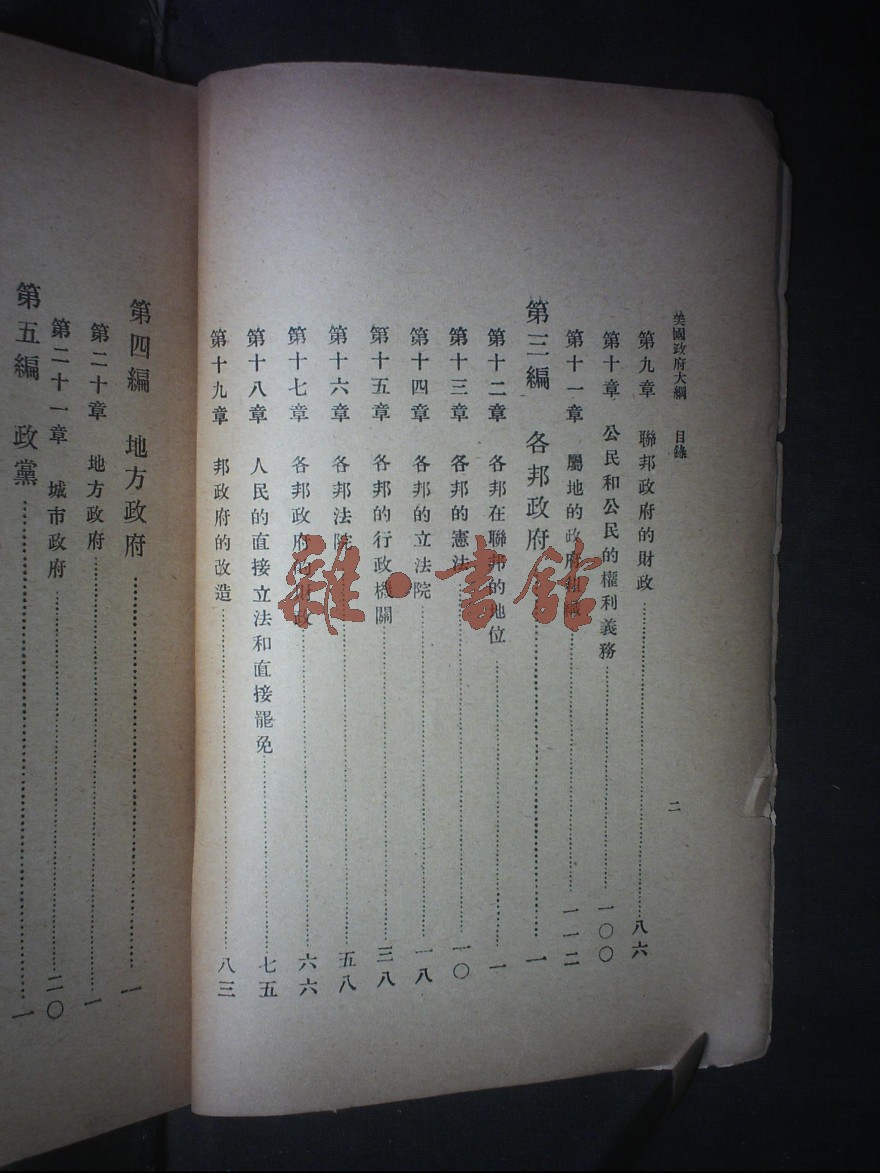 美國政府大綱 目錄 二
第九章 聯邦政府的財政……八六
第十章 公民和公民的權利義務……一〇〇
第十一章 屬地的政府組織……一一二
第三編 各邦政府……一
第十二章 各邦在聯邦的地位……一
第十三章 各邦的憲法……一〇
第十四章 各邦的立法院……一八
第十五章 各邦的行政機關……三八
第十六章 各邦法院……五八
第十七章 各邦政府的財政……六六
第十八章 人民的直接立法和直接罷免……七五
第十九章 邦政府的改造……八三
第四編 地方政府……一
第二十章 地方政府……一
第二十一章 城市政府……二〇
第五編 政黨……一
雜·書館